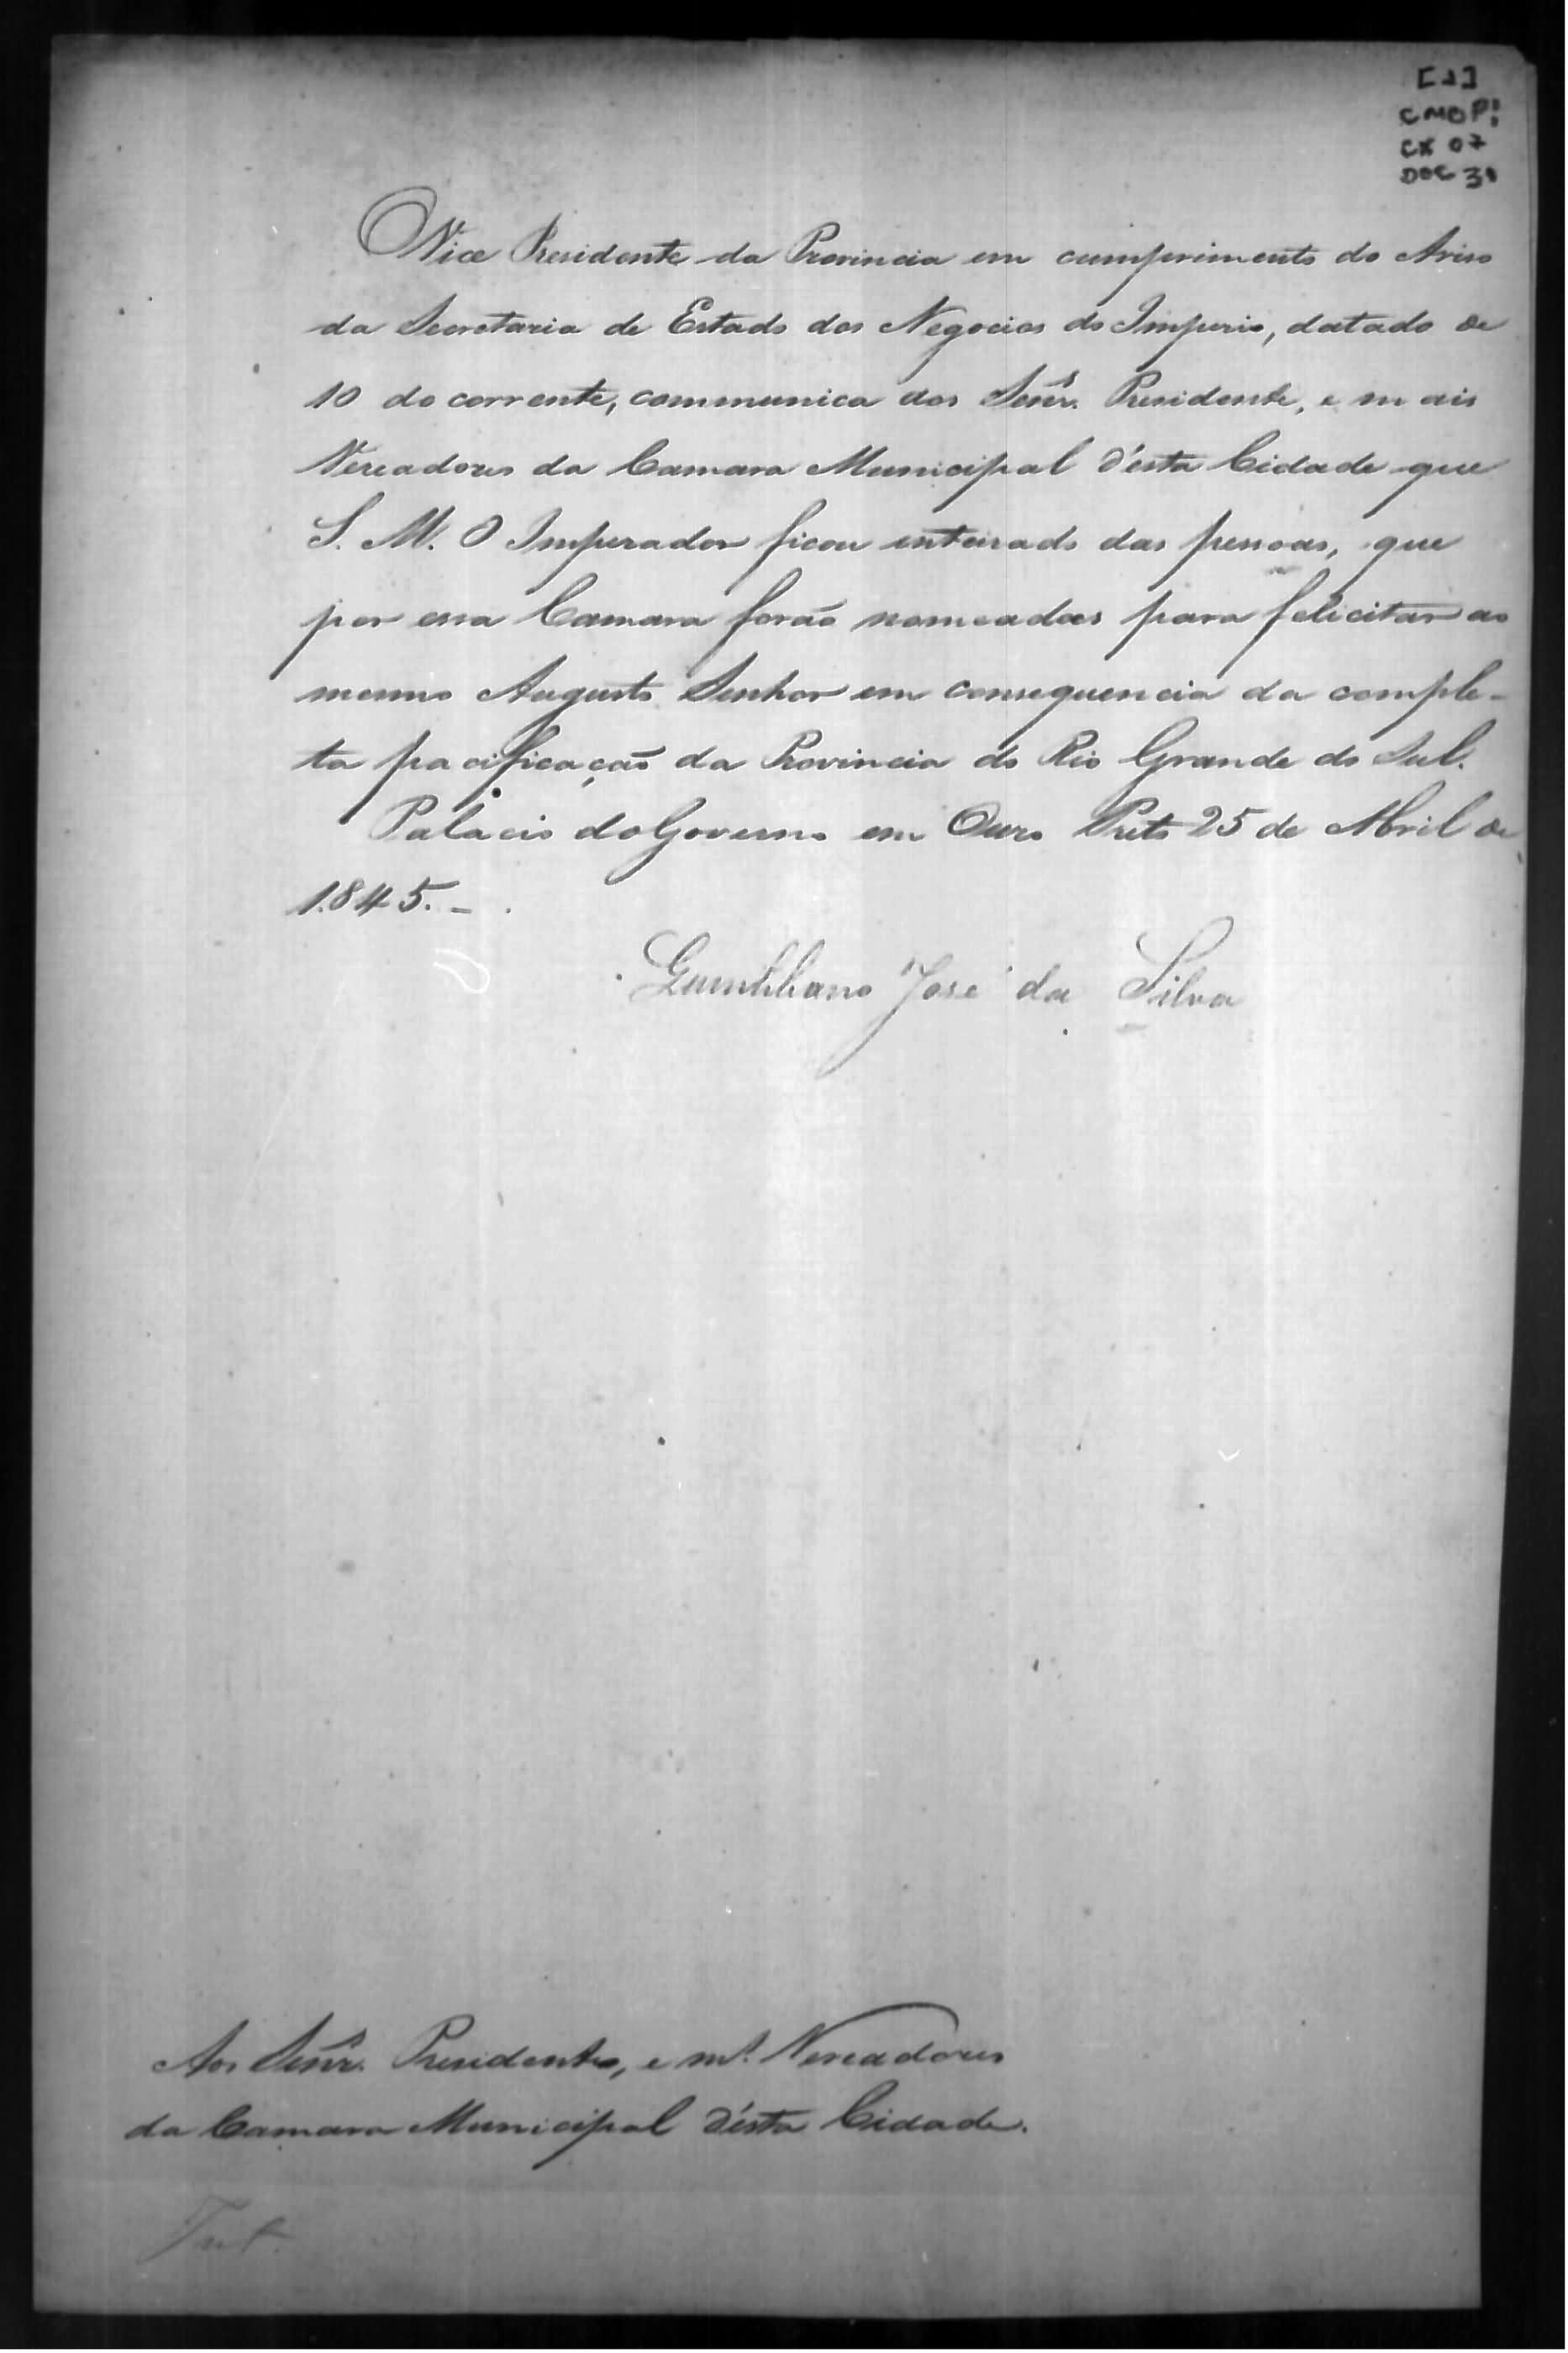 [1]
CMOP:
CX 07
DOC 31
O Vice Presidente da Provincia em cumprimento do Aviso
da Secretaria de Estado dos Negocios do Imperio, datado de
10 do corrente, communica aos Senrs. Presidente, e mais
Vereadores da Camara Municipal d'esta Cidade que
S. M. O Imperador ficou enteirado das pessoas, que
por essa Camara forão nomeadas para felicitar ao
mesmo Augusto Senhor em consequencia da comple-
ta pacificação da Provincia do Rio Grande do Sul.
Palacio do Governo em Ouro Preto 25 de Abril de
1845. -
Quintiliano José da Silva
Aos Senrs. Presidente, e ms. Vereadores
da Camara Municipal d'esta Cidade.